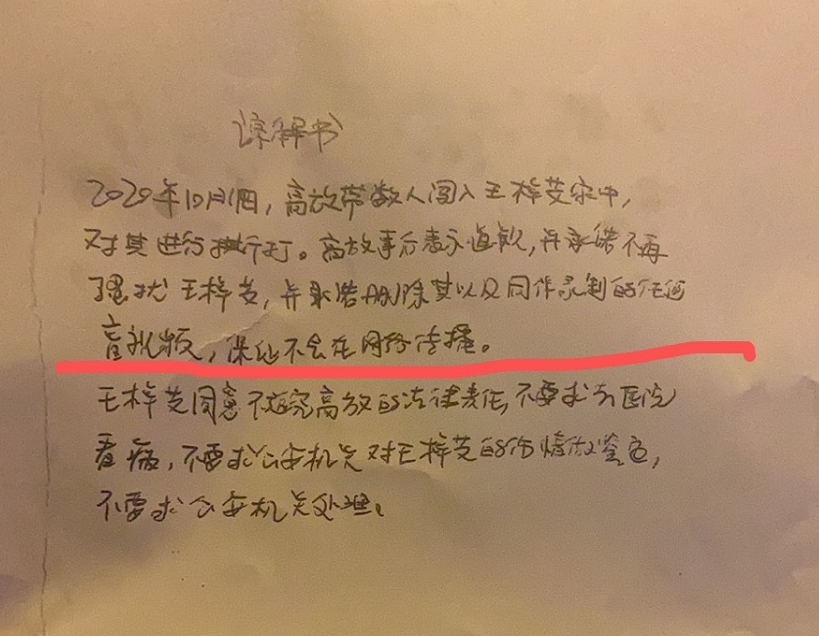 谅解书
2020年10月1日,高放带数人闯入王梓芠家中,
对其进行拳打。高放事后表示道歉,并承诺不再
骚扰王梓芠,并承诺删除其以及同伴录制的任何
音视频,保证不会在网络传播。
王梓芠同意不追究高放的法律责任,不要求去医院
看病,不要求公安机关对王梓芠的伤情做鉴定,
不要求公安机关处理。